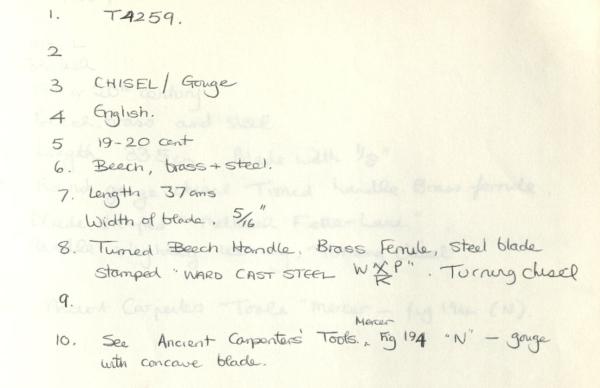 1. T4259.
2
3 CHISEL / Gouge
4 English.
5 19-20 cent
6. Beech, brass + steel.
7. Length 37cms
Width of blade. 5/16"
8. Turned Beech Handle. Brass Ferrule, steel blade
stamped "WARD CAST STEEL W X P". Turning chisel
R
9.
10. See Ancient Carpenters' Tools. Mercer Fig 194 "N" – gouge
with concave blade.